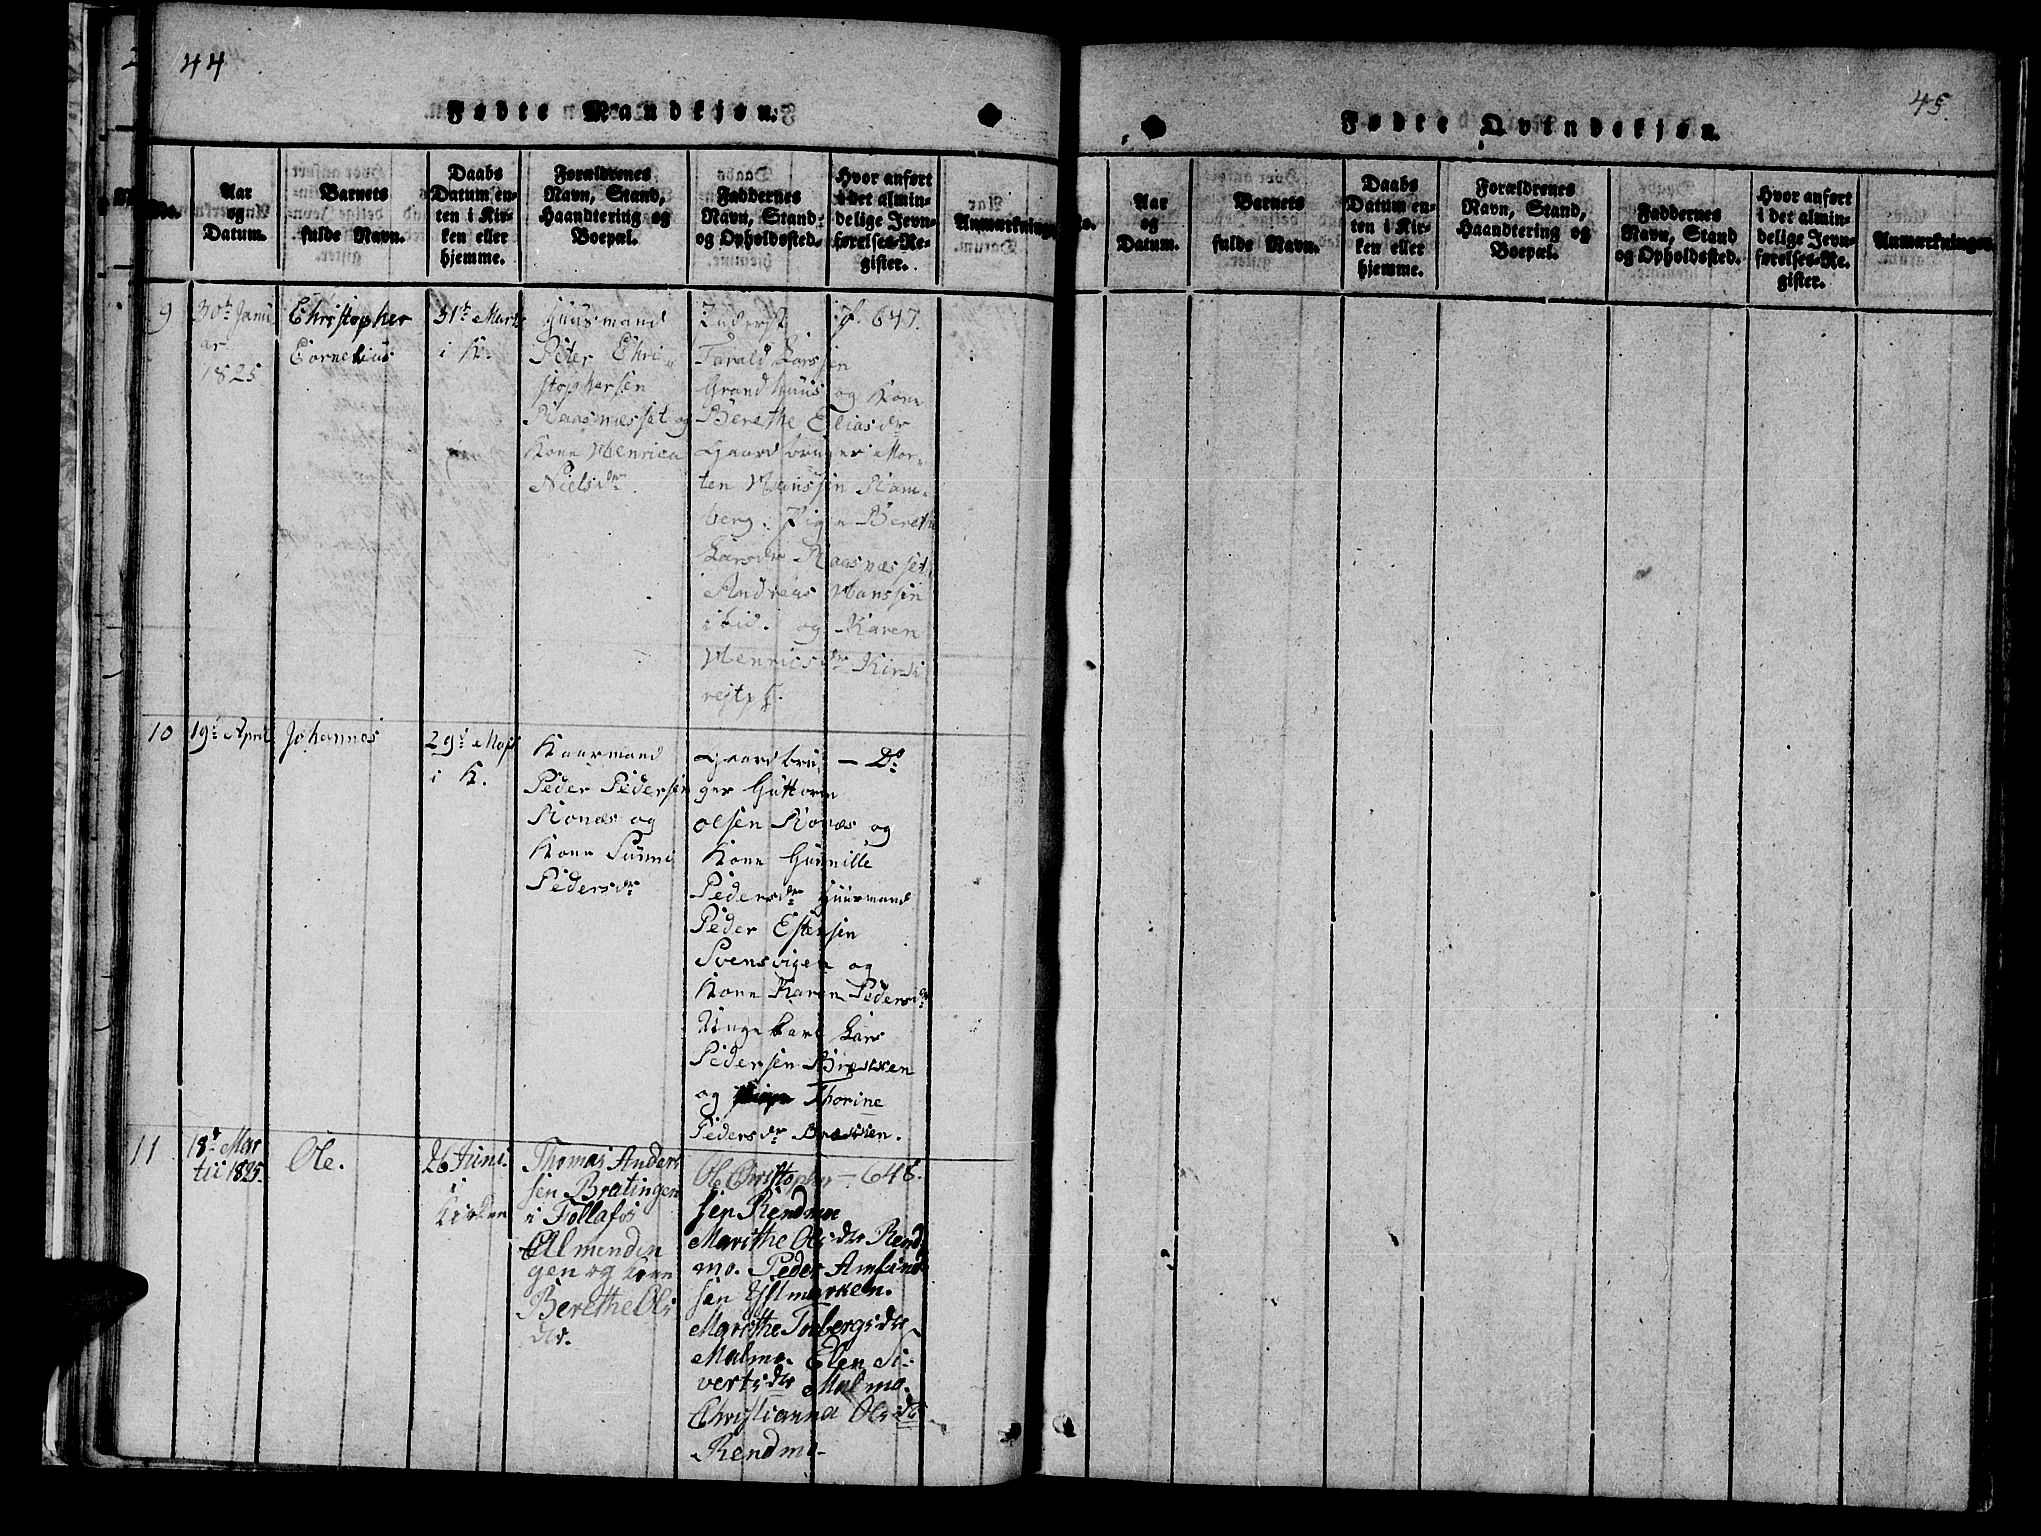 44
Fødte Mandkjøn.
No.
Aar
og
Datum.
Barnets
fulde Navn.
Daabs
Datum en-
ten i Kir-
ken eller
hjemme.
Forældrenes
Navn, Stand,
Haandtering og
Boepæl.
Faddernes
Navn, Stand
og Opholdssted.
Hvor anført
i det almin-
delige Jevn-
førelses-Re-
gister.
Anmærkninger
9
30te Janu
ar
1825
Christopher
Cornelius
31te Marts
i K.
Huusmand
Peter Chri-
stophersen
Kaasnæsset og
Kone Henrica
Nielsdr
Inderst
Farald Larssen
Grandhuus og Kone
Berethe Eliasdr
Gaardbruger Mor-
ten Hanssen Ram-
berg. Pige Berethe
Larsdr Kaasnæsset.
Andreas Hanssen
ibid. og Karen
Henricsdr
f. 647.
10
19de April
Johannes
29de Maji
i K.
Huusmand
Peder Pedersen
Konæs og
Kone
Pedersdr
Gaardbru-
ger Guttorm
Olsen Konæs og
Kone Gunnille
Pedersdr Huusmand
Peder Estensen
Svensvigen og
Kone Karen Pedersdr
Ungekarl Lars
Pedersen Bræsken
og Thorine
Pedersdr Bræsken.
— Do
11
18de Mar
tii 1825.
Ole.
26 Juni.
i
Kirken
Thomas Anders
sen Bratingen
i Follafos
Almendin
gen og Kone
Berethe Ols
dtr.
Ole Christopher
sen Rendmoe
Marithe Olsdtr Rend
mo. Peder Amund
sen Estmarken.
Marithe Torbergsdtr
Malmo. Elen Si-
vertsdtr Malmo.
Christianna Olsdtr
Rendmo.
— 648.
45.
Fødte Qvindekjøn.
No.
Aar
og
Datum.
Barnets
fulde Navn.
Daabs
Datum en-
ten i Kir-
ken eller
hjemme.
Forældrenes
Navn, Stand,
Haandtering og
Boepæl.
Faddernes
Navn, Stand
og Opholdssted.
Hvor anført
i det almin-
delige Jevn-
førelses-Re-
gister.
Anmærkninger.